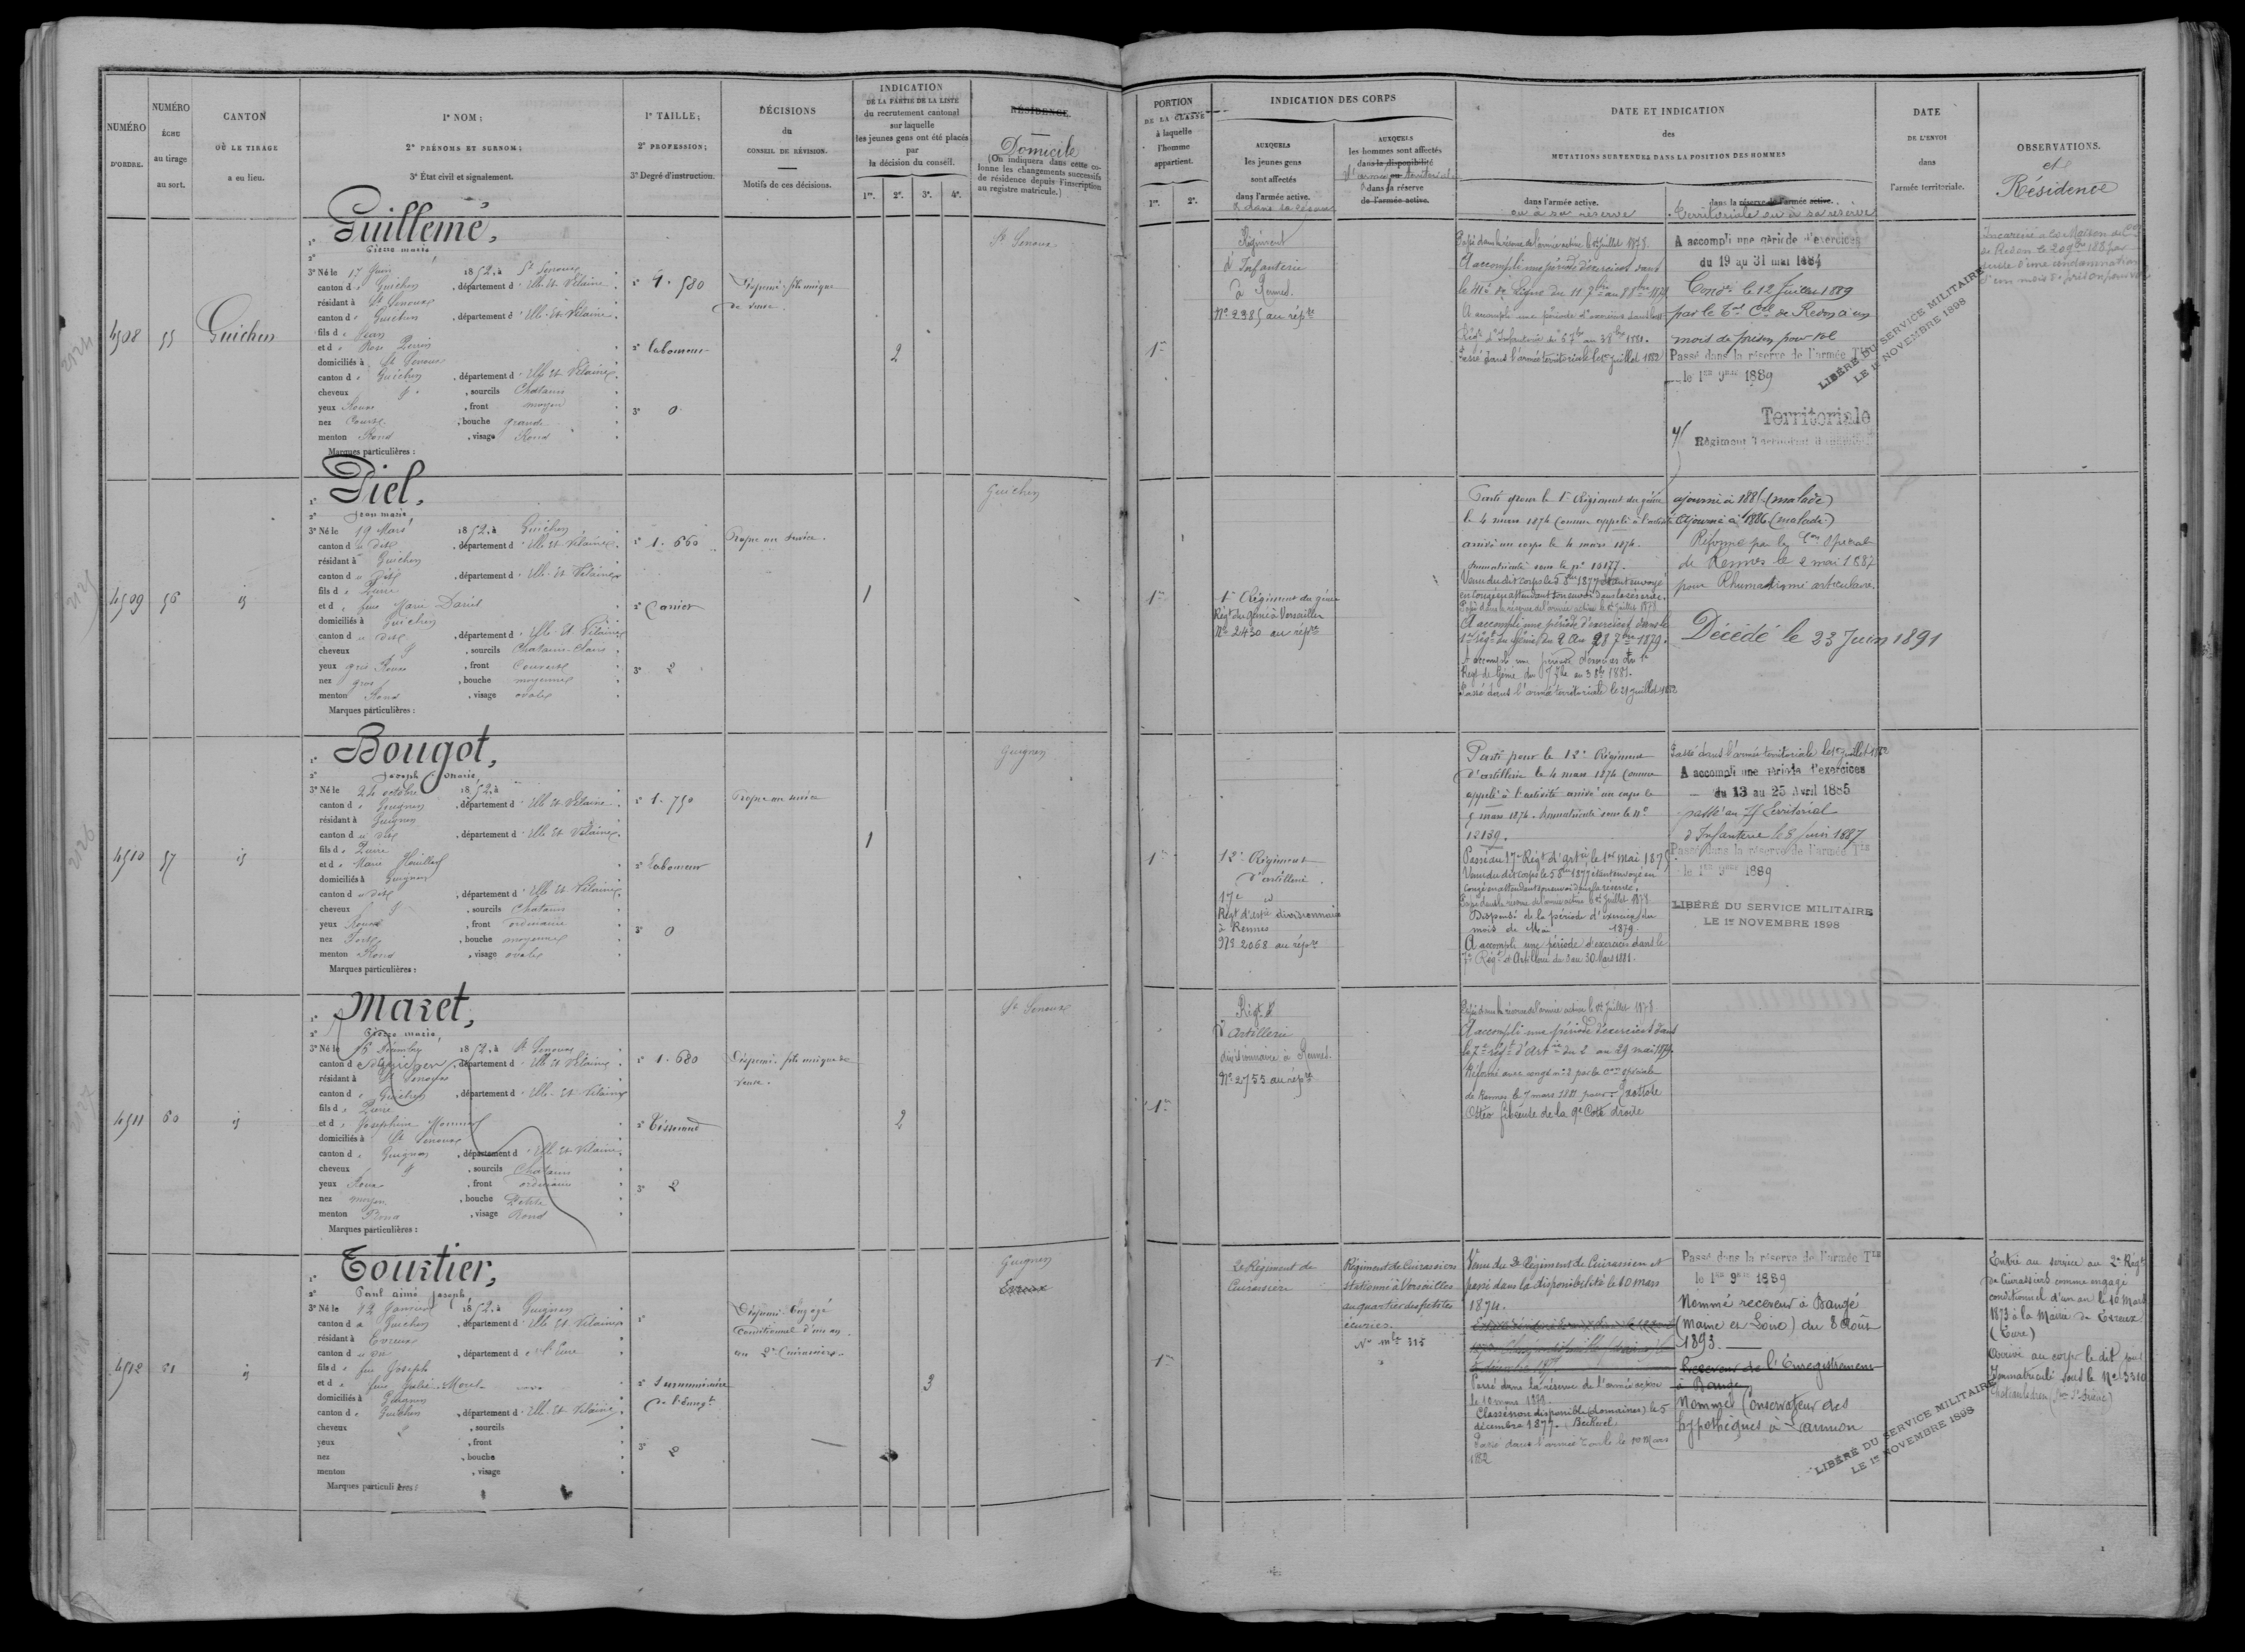 NUMÉRO
D'ORDRE.
NUMÉRO
ÉCHU
au tirage
au sort.
CANTON
OÙ LE TIRAGE
a eu lieu.
1° NOM;
2° PRÉNOMS ET SURNOM;
3° État civil et signalement.
1° TAILLE;
2° PROFESSION;
3° Degré d'instruction.
DÉCISIONS
du
CONSEIL DE RÉVISION.
Motifs de ces décisions.
INDICATION
DE LA PARTIE DE LA LISTE
du recrutement cantonal
sur laquelle
les jeunes gens ont été placés
par
la décision du conseil.
1re. 2e. 3e. 4e.
RÉSIDENCE
Domicile
(On indiquera dans cette co-
lonne les changements successifs
de résidence depuis l'inscription
au registre matricule.)
PORTION
DE LA CLASSE
à laquelle
l'homme
appartient.
1re. 2e.
INDICATION DES CORPS
AUXQUELS
les jeunes gens
sont affectés
dans l'armée active.
& dans sa réserve
AUXQUELS
les hommes sont affectés
dans la disponibilité
ou
dans la réserve
de l'armée active.
DATE ET INDICATION
des
MUTATIONS SURVENUES DANS LA POSITION DES HOMMES
dans l'armée active.
ou à sa réserve
dans la réserve de l'armée active.
territoriale ou à sa réserve
DATE
DE L'ENVOI
dans
l'armée territoriale.
OBSERVATIONS.
et
Résidence
4508
55
Guichen
1° Guillemé,
2° Pierre marie,
3° Né le 17 Juin 1852, à St Senoux
canton de Guichen, département d'Ille et Vilaine
résidant à St Senoux
canton de Guichen, département d'Ille et Vilaine
fils de Jean
et de Rose Perrin
domiciliés à St Senoux
canton de Guichen, département d'Ille et Vilaine
cheveux &, sourcils Chatains
yeux Roux, front moyen
nez Court, bouche grande
menton Rond, visage Rond
Marques particulières :
1° 1.580
2° laboureur
3° 0
Dispensé fils unique
de veuve
2
St Senoux
1re
Régiment
d'Infanterie
à Rennes.
No 2985 au répre
Passé dans la réserve de l'armée active le 1er Juillet 1878.
A accompli une période d'exercices dans
le 41e de Ligne du 11 7bre au 8 8bre 1879
A accompli une période d'exercices dans le
Régt d'Infanterie du 6 7bre au 3 8bre 1881.
Passé dans l'armée territoriale le 1er juillet 1882
A accompli une période d'exercices
du 19 au 31 mai 1884
Condé le 12 Juillet 1889
par le Tal Cel de Redon à un
mois de prison pour vol
Passé dans la réserve de l'armée Tle
le 1er 9bre 1889
Territoriale
Incarcéré à la Maison de Con
de Redon le 20 9bre 188 par
suite d'une condamnation
d'un mois de prison pour vol
LIBÉRÉ DU SERVICE MILITAIRE
LE 1er NOVEMBRE 1898
4509
56
id
1° Piel,
2° Jean marie,
3° Né le 19 Mars 1852, à Guichen
canton du dit, département d'Ille et Vilaine
résidant à Guichen
canton du dit, département d'Ille et Vilaine
fils de Pierre
et de feue Marie Daniel
domiciliés à Guichen
canton du dit, département d'Ille et Vilaine
cheveux &, sourcils Chatains-Clairs
yeux gris Roux, front Couvert
nez gros, bouche moyenne
menton Rond, visage ovale
Marques particulières :
1° 1.660
2° Carrier
3° 2
Propre au service.
1
Guichen
1re
1er Régiment du génie
Régt du Génie à Versailles
No 2430 au répre
Parti pour le 1er Régiment du génie
le 4 mars 1874 comme appelé à l'activité
arrivé au corps le 4 mars 1874.
Immatriculé sous le no 10177.
Venu du dit corps le 5 8bre 1877 étant envoyé
en congé en attendant son envoi dans la réserve.
Passé dans la réserve de l'armée active le 1er Juillet 1878
A accompli une période d'exercices dans le
1er régt du Génie du 2 au 28 7bre 1879.
A accompli une période d'exercices au 1er
Régt de Génie du 5 7bre au 3 8bre 1881.
Passé dans l'armée territoriale le 21 juillet 1882
ajourné à 1885 (malade)
Ajourné à 1886 (malade)
Réformé par la Con Spéciale
de Rennes le 2 mai 1887
pour Rhumatisme articulaire.
Décédé le 23 Juin 1891
4510
57
id
1° Bougot,
2° Joseph marie,
3° Né le 24 octobre 1852, à
canton de Guignen, département d'Ille et Vilaine
résidant à Guignen
canton du dit, département d'Ille et Vilaine
fils de Pierre
et de Marie Houillot
domiciliés à Guignen
canton du dit, département d'Ille et Vilaine
cheveux &, sourcils Chatains
yeux Roux, front ordinaire
nez Fort, bouche moyenne
menton Rond, visage ovale
Marques particulières :
1° 1.750
2° Laboureur
3° 0
Propre au service
1
Guignen
1re
12e Régiment
d'artillerie
17e id
Régt d'artie divisionnaire
à Rennes
No 2068 au répre
Parti pour le 12e Régiment
d'artillerie le 4 mars 1874 comme
appelé à l'activité arrivé au corps le
5 mars 1874. Immatriculé sous le no
12139.
Passé au 17e Régt d'artie le 1er Mai 1875
Venu du dit corps le 5 8bre 1877 étant envoyé en
congé en attendant son envoi dans la réserve.
Passé dans la réserve de l'armée active le 1er Juillet 1878
Dispensé de la période d'exercices du
mois de Mai 1879.
A accompli une période d'exercices dans le
7e Régt d'Artillerie du 3 au 30 Mars 1881.
Passé dans l'armée territoriale le 1er juillet 1882
A accompli une période d'exercices
du 13 au 25 Avril 1885
passé au 75 territorial
d'Infanterie le 8 Juin 1887
Passé dans la réserve de l'armée Tle
le 1er 9bre 1889
LIBÉRÉ DU SERVICE MILITAIRE
LE 1er NOVEMBRE 1898
4511
60
id
1° Maret,
2° Pierre marie,
3° Né le 15 Décembre 1852, à St Senoux
canton de Guichen, département d'Ille et Vilaine
résidant à St Senoux
canton de Guichen, département d'Ille et Vilaine
fils de Pierre
et de Joséphine Monnier
domiciliés à St Senoux
canton de Guignen, département d'Ille et Vilaine
cheveux &, sourcils Chatains
yeux Roux, front ordinaire
nez moyen, bouche Petite
menton Rond, visage Rond
Marques particulières :
1° 1.680
2° Tisserand
3° 2
Dispensé fils unique de
veuve.
2
St Senoux
1re
Régt
d'Artillerie
divisionnaire à Rennes.
No 2755 au répre
Passé dans la réserve de l'armée active le 1er Juillet 1878.
A accompli une période d'exercices dans
le 7e régt d'Artie du 2 au 29 mai 1879.
Réformé avec congé no 2 par la Con spéciale
de Rennes le 7 mars 1881 pour Exostose
Ostéo fibreute de la 9e Côte droite
4512
61
id
1° Tourtier,
2° Paul aimé Joseph,
3° Né le 12 Janvier 1852, à Guignen
canton de Guichen, département d'Ille et Vilaine
résidant à Evreux
canton du dit, département de l'Eure
fils de feu Joseph
et de feue Julie Morel
domiciliés à Guignen
canton de Guichen, département d'Ille et Vilaine
cheveux, sourcils
yeux, front
nez, bouche
menton, visage
Marques particulières :
1°
2° Surnuméraire
de l'Enregt
3° 2
Dispensé Engagé
Conditionnel d'un an
au 2e Cuirassiers.
3
Guignen
Evreux
1re
2e Régiment de
Cuirassiers
Régiment de Cuirassiers
stationné à Versailles
au quartier des petites
écuries.
No mle 315
Venu du 2e Régiment de Cuirassiers et
passé dans la disponibilité le 10 mars
1874.
Passé dans la réserve de l'armée active
le 10 mars 1878
Classé non disponible (domaines) le 5
décembre 1877.
Passé dans l'armée Toriale le 10 Mars
1882
Passé dans la réserve de l'armée Tle
le 1er 9bre 1889
Nommé receveur à Baugé
(Maine et Loire) du 8 Août
1893.
Receveur de l'Enregistrement
à Baugé
Nommé Conservateur des
hypothèques à Lannion
LIBÉRÉ DU SERVICE MILITAIRE
LE 1er NOVEMBRE 1898
Entré au service au 2e Régt
de Cuirassiers comme engagé
conditionnel d'un an le 10 Mars
1873 à la Mairie de Evreux
(Eure)
Arrivé au corps le dit jour
Immatriculé sous le No 3310